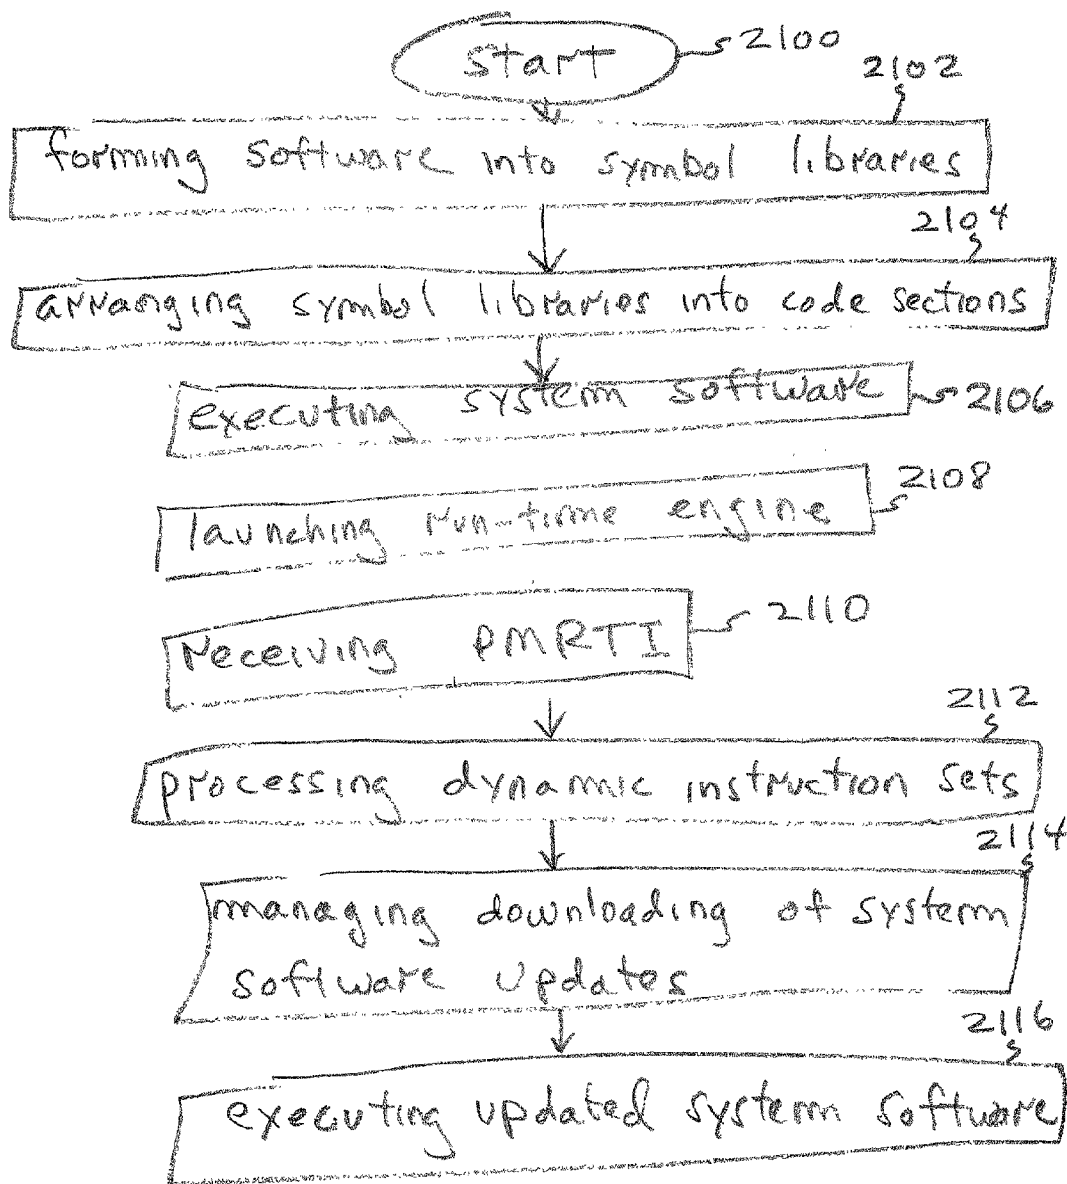 start 2100
2102
forming software into symbol libraries
2104
arranging symbol libraries into code sections
executing system software 2106
launching run-time engine 2108
receiving PMRTI 2110
2112
processing dynamic instruction sets
2114
managing downloading of system
software updates
2116
executing updated system software